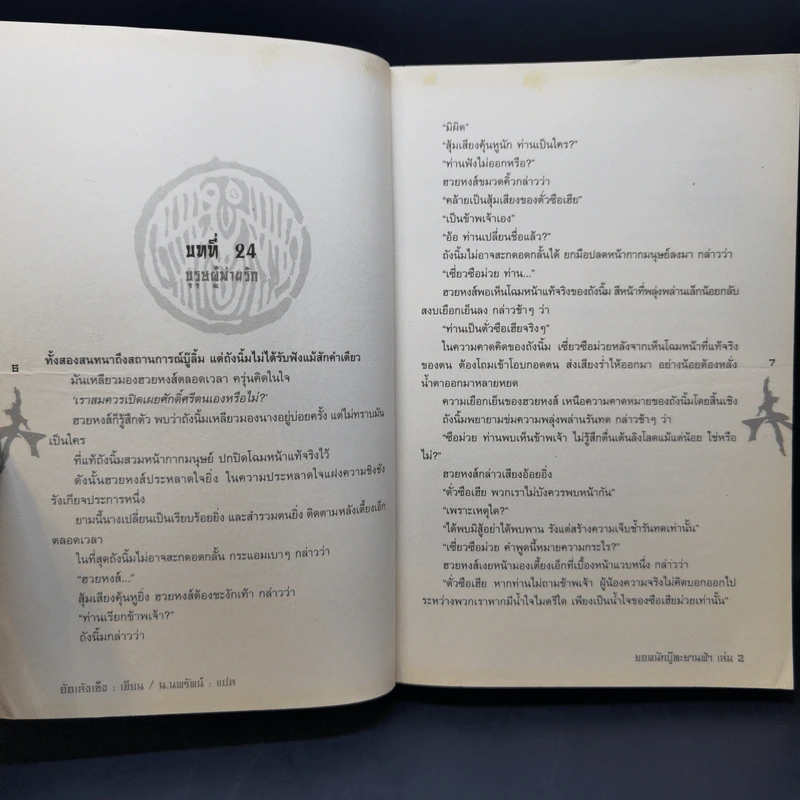 บทที่ 24
บุรุษผู้พ่ายรัก
ทั้งสองสนทนาถึงสถานการณ์บู๊ลิ้ม แต่ถังนิ้มไม่ได้รับฟังแม้สักคำเดียว
มันเหลียวมองฮวยหงส์ตลอดเวลา ครุ่นคิดในใจ
'เราสมควรเปิดเผยศักดิ์ศรีตนเองหรือไม่?'
ฮวยหงส์ก็รู้สึกตัว พบว่าถังนิ้มเหลียวมองนางอยู่บ่อยครั้ง แต่ไม่ทราบมัน
เป็นใคร
ที่แท้ถังนิ้มสวมหน้ากากมนุษย์ ปกปิดโฉมหน้าแท้จริงไว้
ดังนั้นฮวยหงส์ประหลาดใจยิ่ง ในความประหลาดใจแฝงความชิงชัง
รังเกียจประการหนึ่ง
ยามนี้นางเปลี่ยนเป็นเรียบร้อยยิ่ง และสำรวมตนยิ่ง ติดตามหลังเตี้ยงเอ็ก
ตลอดเวลา
ในที่สุดถังนิ้มไม่อาจสะกดอดกลั้น กระแอมเบาๆ กล่าวว่า
"ฮวยหงส์..."
สุ้มเสียงคุ้นหูยิ่ง ฮวยหงส์ต้องชะงักเท้า กล่าวว่า
"ท่านเรียกข้าพเจ้า?"
ถังนิ้มกล่าวว่า
6
อ้อเล้งเซ็ง : เขียน / น.นพรัตน์ : แปล
"มิผิด"
"สุ้มเสียงคุ้นหูนัก ท่านเป็นใคร?"
"ท่านฟังไม่ออกหรือ?"
ฮวยหงส์ขมวดคิ้วกล่าวว่า
"คล้ายเป็นสุ้มเสียงของตั่วซือเฮีย"
"เป็นข้าพเจ้าเอง"
"อ้อ ท่านเปลี่ยนชื่อแล้ว?"
ถังนิ้มไม่อาจสะกดอดกลั้นได้ ยกมือปลดหน้ากากมนุษย์ลงมา กล่าวว่า
"เซี่ยวซือม่วย ท่าน..."
ฮวยหงส์พอเห็นโฉมหน้าแท้จริงของถังนิ้ม สีหน้าที่พลุ่งพล่านเล็กน้อยกลับ
สงบเยือกเย็นลง กล่าวช้าๆ ว่า
"ท่านเป็นตั่วซือเฮียจริงๆ"
ในความคาดคิดของถังนิ้ม เซี่ยวซือม่วยหลังจากเห็นโฉมหน้าที่แท้จริง
ของตน ต้องโถมเข้าโอบกอดตน ส่งเสียงร่ำไห้ออกมา อย่างน้อยต้องหลั่ง
น้ำตาออกมาหลายหยด
ความเยือกเย็นของฮวยหงส์ เหนือความคาดหมายของถังนิ้มโดยสิ้นเชิง
ถังนิ้มพยายามข่มความพลุ่งพล่านรันทด กล่าวช้าๆ ว่า
"ซือม่วย ท่านพบเห็นข้าพเจ้า ไม่รู้สึกตื่นเต้นลิงโลดแม้แต่น้อย ใช่หรือ
ไม่?"
ฮวยหงส์กล่าวเสียงอ้อยอิ่ง
"ตั่วซือเฮีย พวกเราไม่บังควรพบหน้ากัน"
"เพราะเหตุใด?"
"ได้พบมิสู้อย่าได้พบพาน รังแต่สร้างความเจ็บช้ำรันทดเท่านั้น"
"เซี่ยวซือม่วย คำพูดนี้หมายความกระไร?"
ฮวยหงส์เงยหน้ามองเตี้ยงเอ็กที่เบื้องหน้าแวบหนึ่ง กล่าวว่า
"ตั่วซือเฮีย หากท่านไม่ถามข้าพเจ้า ผู้น้องความจริงไม่คิดบอกออกไป
ระหว่างพวกเราหากมีน้ำใจไมตรีใด เพียงเป็นน้ำใจของซือเฮียม่วยเท่านั้น"
7
ยอดนักบู๊ทะยานฟ้า เล่ม 2